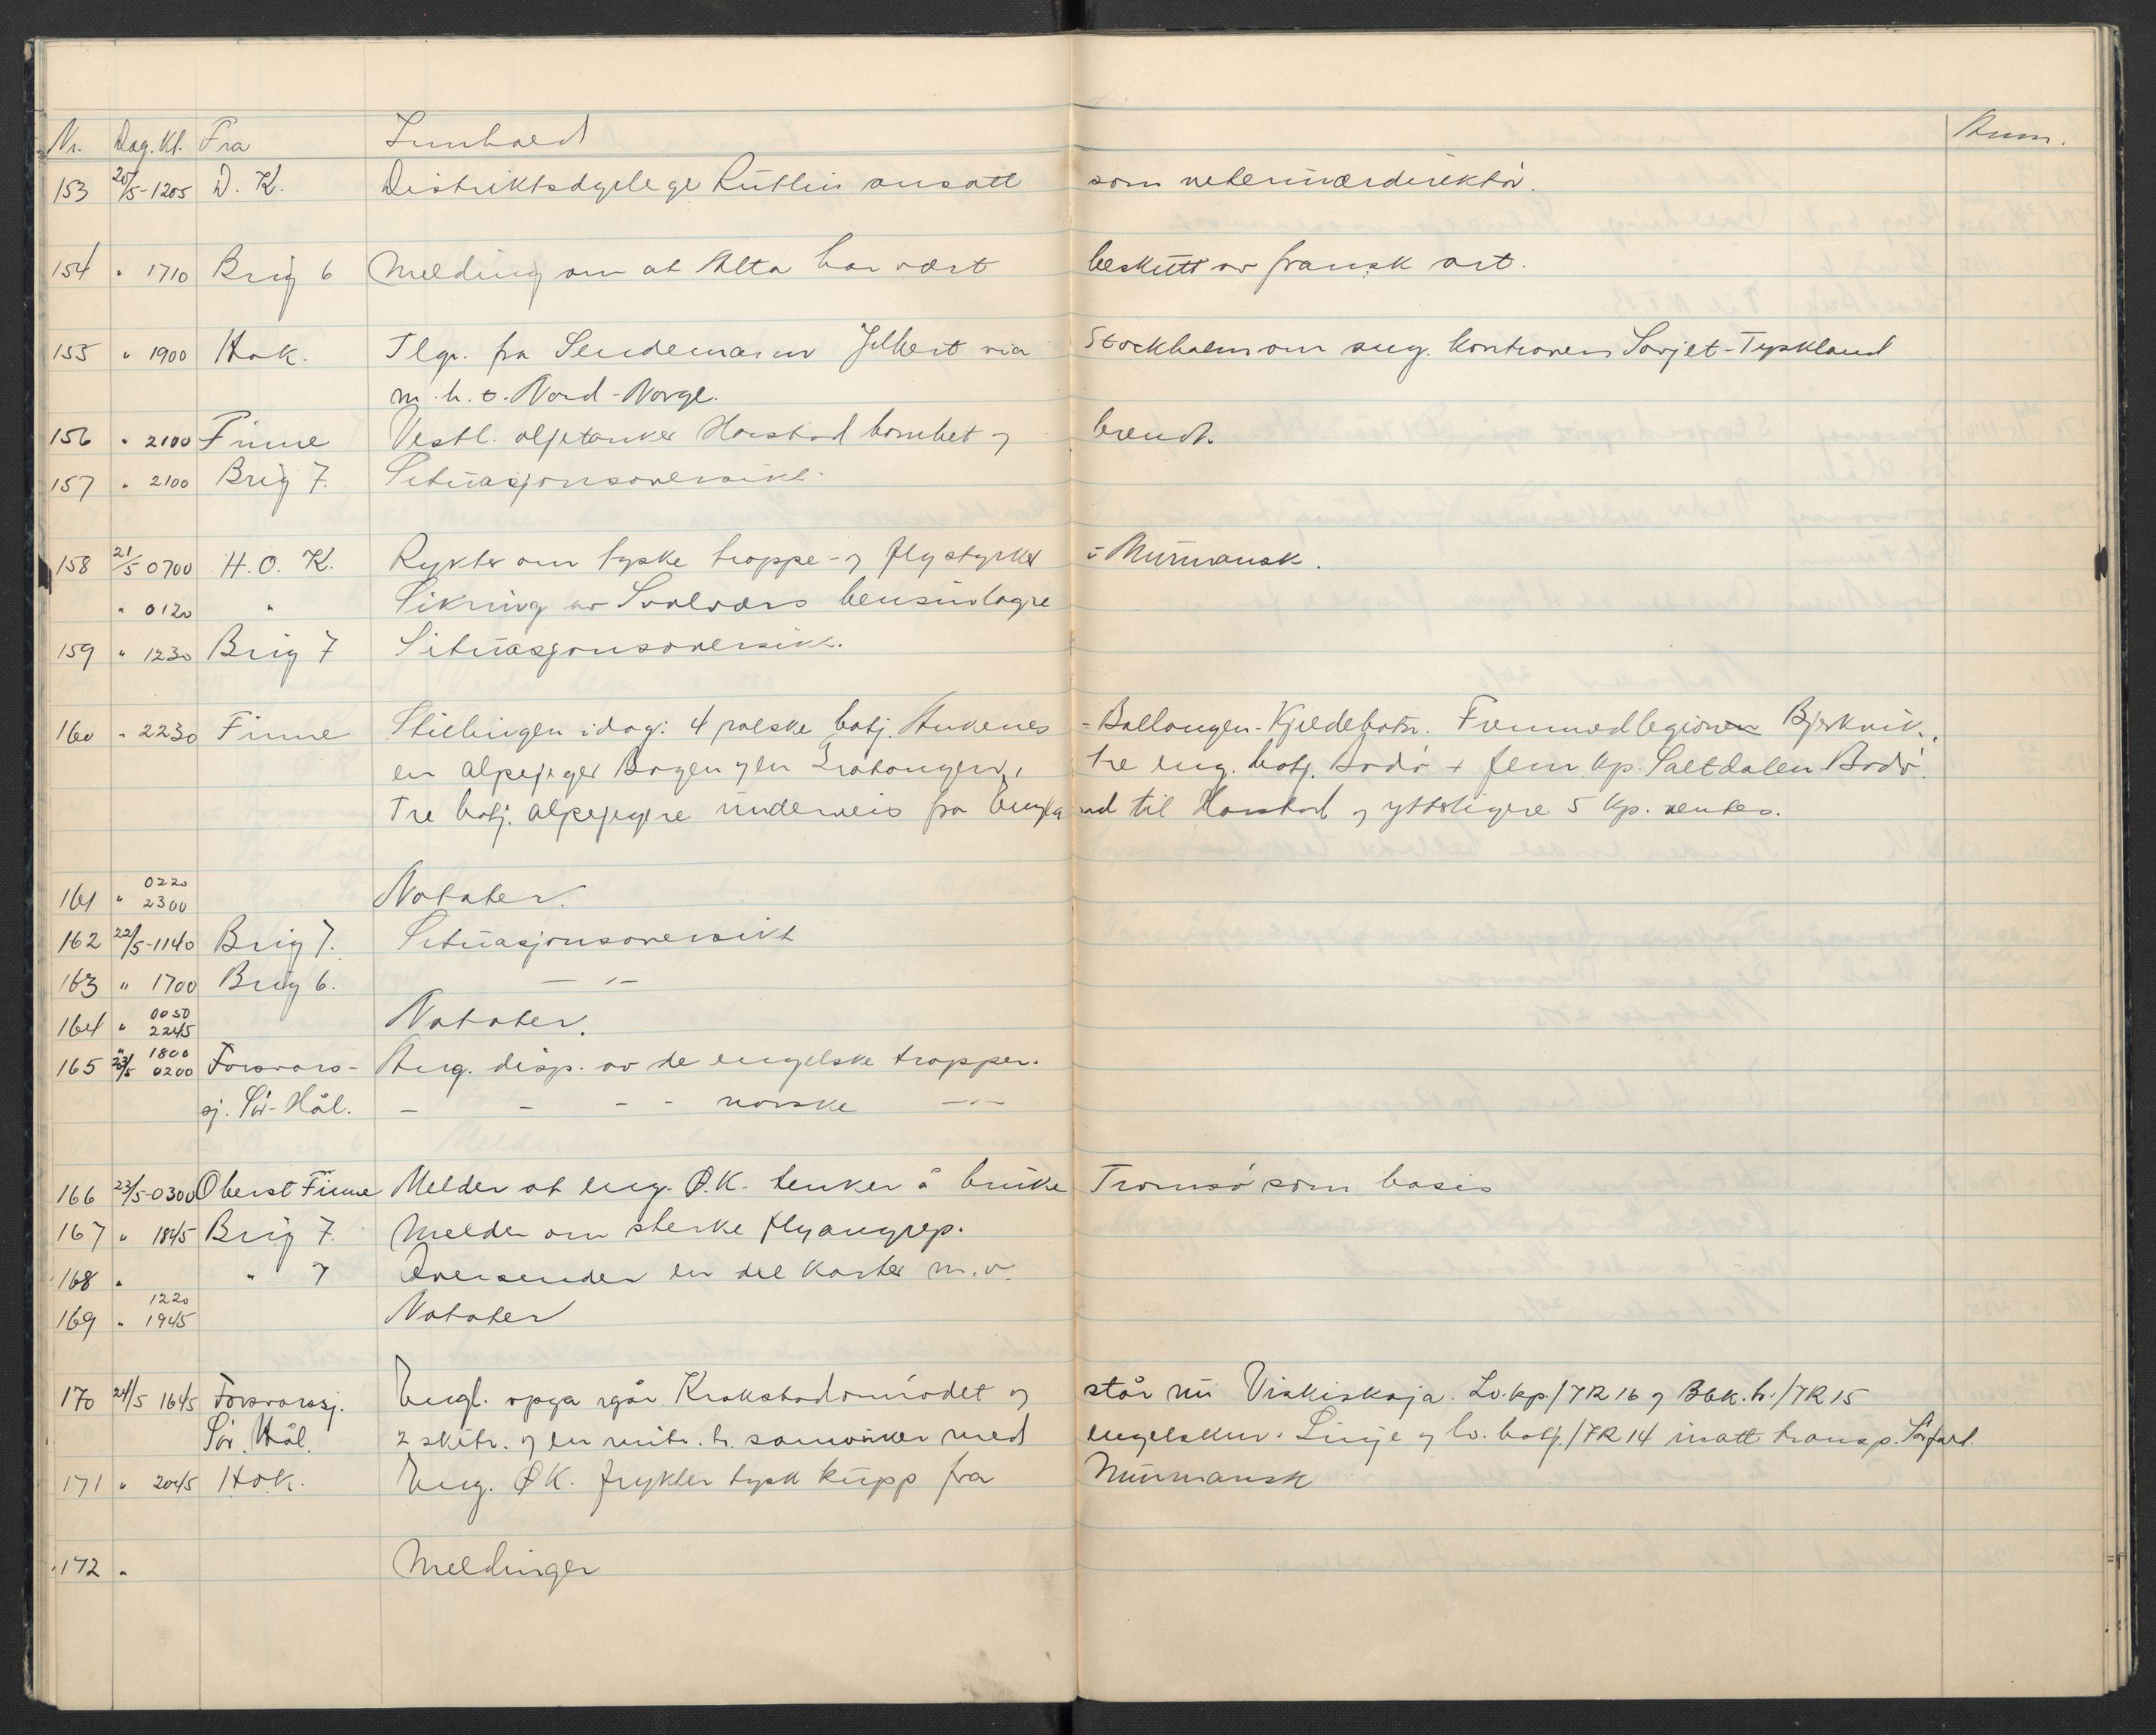 Nr. Dag. Kl. Fra Innhold Anm.
153 20/5-1205 D. K. Distriktsdyrlege ansatt som veterinærdirektör.
154 " 1710 Brig 6 Melding om at Alta har vært beskutt av fransk art.
155 " 1900 Hok. Tlgr. fra Sendemann via Stockholm om ang. Sovjet-Tyskland
m. h. t. Nord-Norge.
156 " 2100 Finne Vestl. oljetanker Harstad bombet og brendt.
157 " 2100 Brig 7. Situasjonsoversikt.
158 21/5 0700 H. O. K. Rykter om tyske troppe- og flystyrker i Murmansk.
" 0120 " Sikring av Svolværs bensinlagre
159 " 1230 Brig 7 Situasjonsoversikt.
160 " 2230 Finne Stillingen idag: 4 polske batj. Ankenes - Ballangen - Kjeldebotn. Fremmedlegionen Bjerkvik.
en alpejeger Bogen og en Gratangen, tre eng. batj. Bodö + fem kp. Saltdalen Bodö.
Tre batj. alpejegere underveis fra England til Harstad og ytterligere 5 kp. ventes.
161 " 0220 2300 Notater.
162 22/5-1140 Brig 7. Situasjonsoversikt
163 " 1700 Brig 6. — " —
164 " 0050 2245 Notater.
165 " 1800 23/5 0200 Forsvars- Ang. disp. av de engelske tropper.
sj. Sör-Hål. — - - - norske — " —
166 23/5-0300 Oberst Finne Melder at eng. Ø.K. tenker å bruke Tromsö som basis
167 " 1845 Brig 7. Melder om sterke flyangrep.
168 " " 7 Oversender en del karter m.v.
169 " 1220 1945 Notater
170 24/5 1645 Forsvarssj. Engl. opga igår Krokstadområdet og står nu Viskiskoja. Lv. kp./IR 16 og Bbk. h./IR 15
Sör. Hål. 2 skitr. og en mitr. tr. samvirker med engelskm. Linje og lv. batj./IR 14 inatt transp.
171 " 2045 Hok. Eng. ØK. frykter tysk kupp fra Murmansk
172 " Meldinger